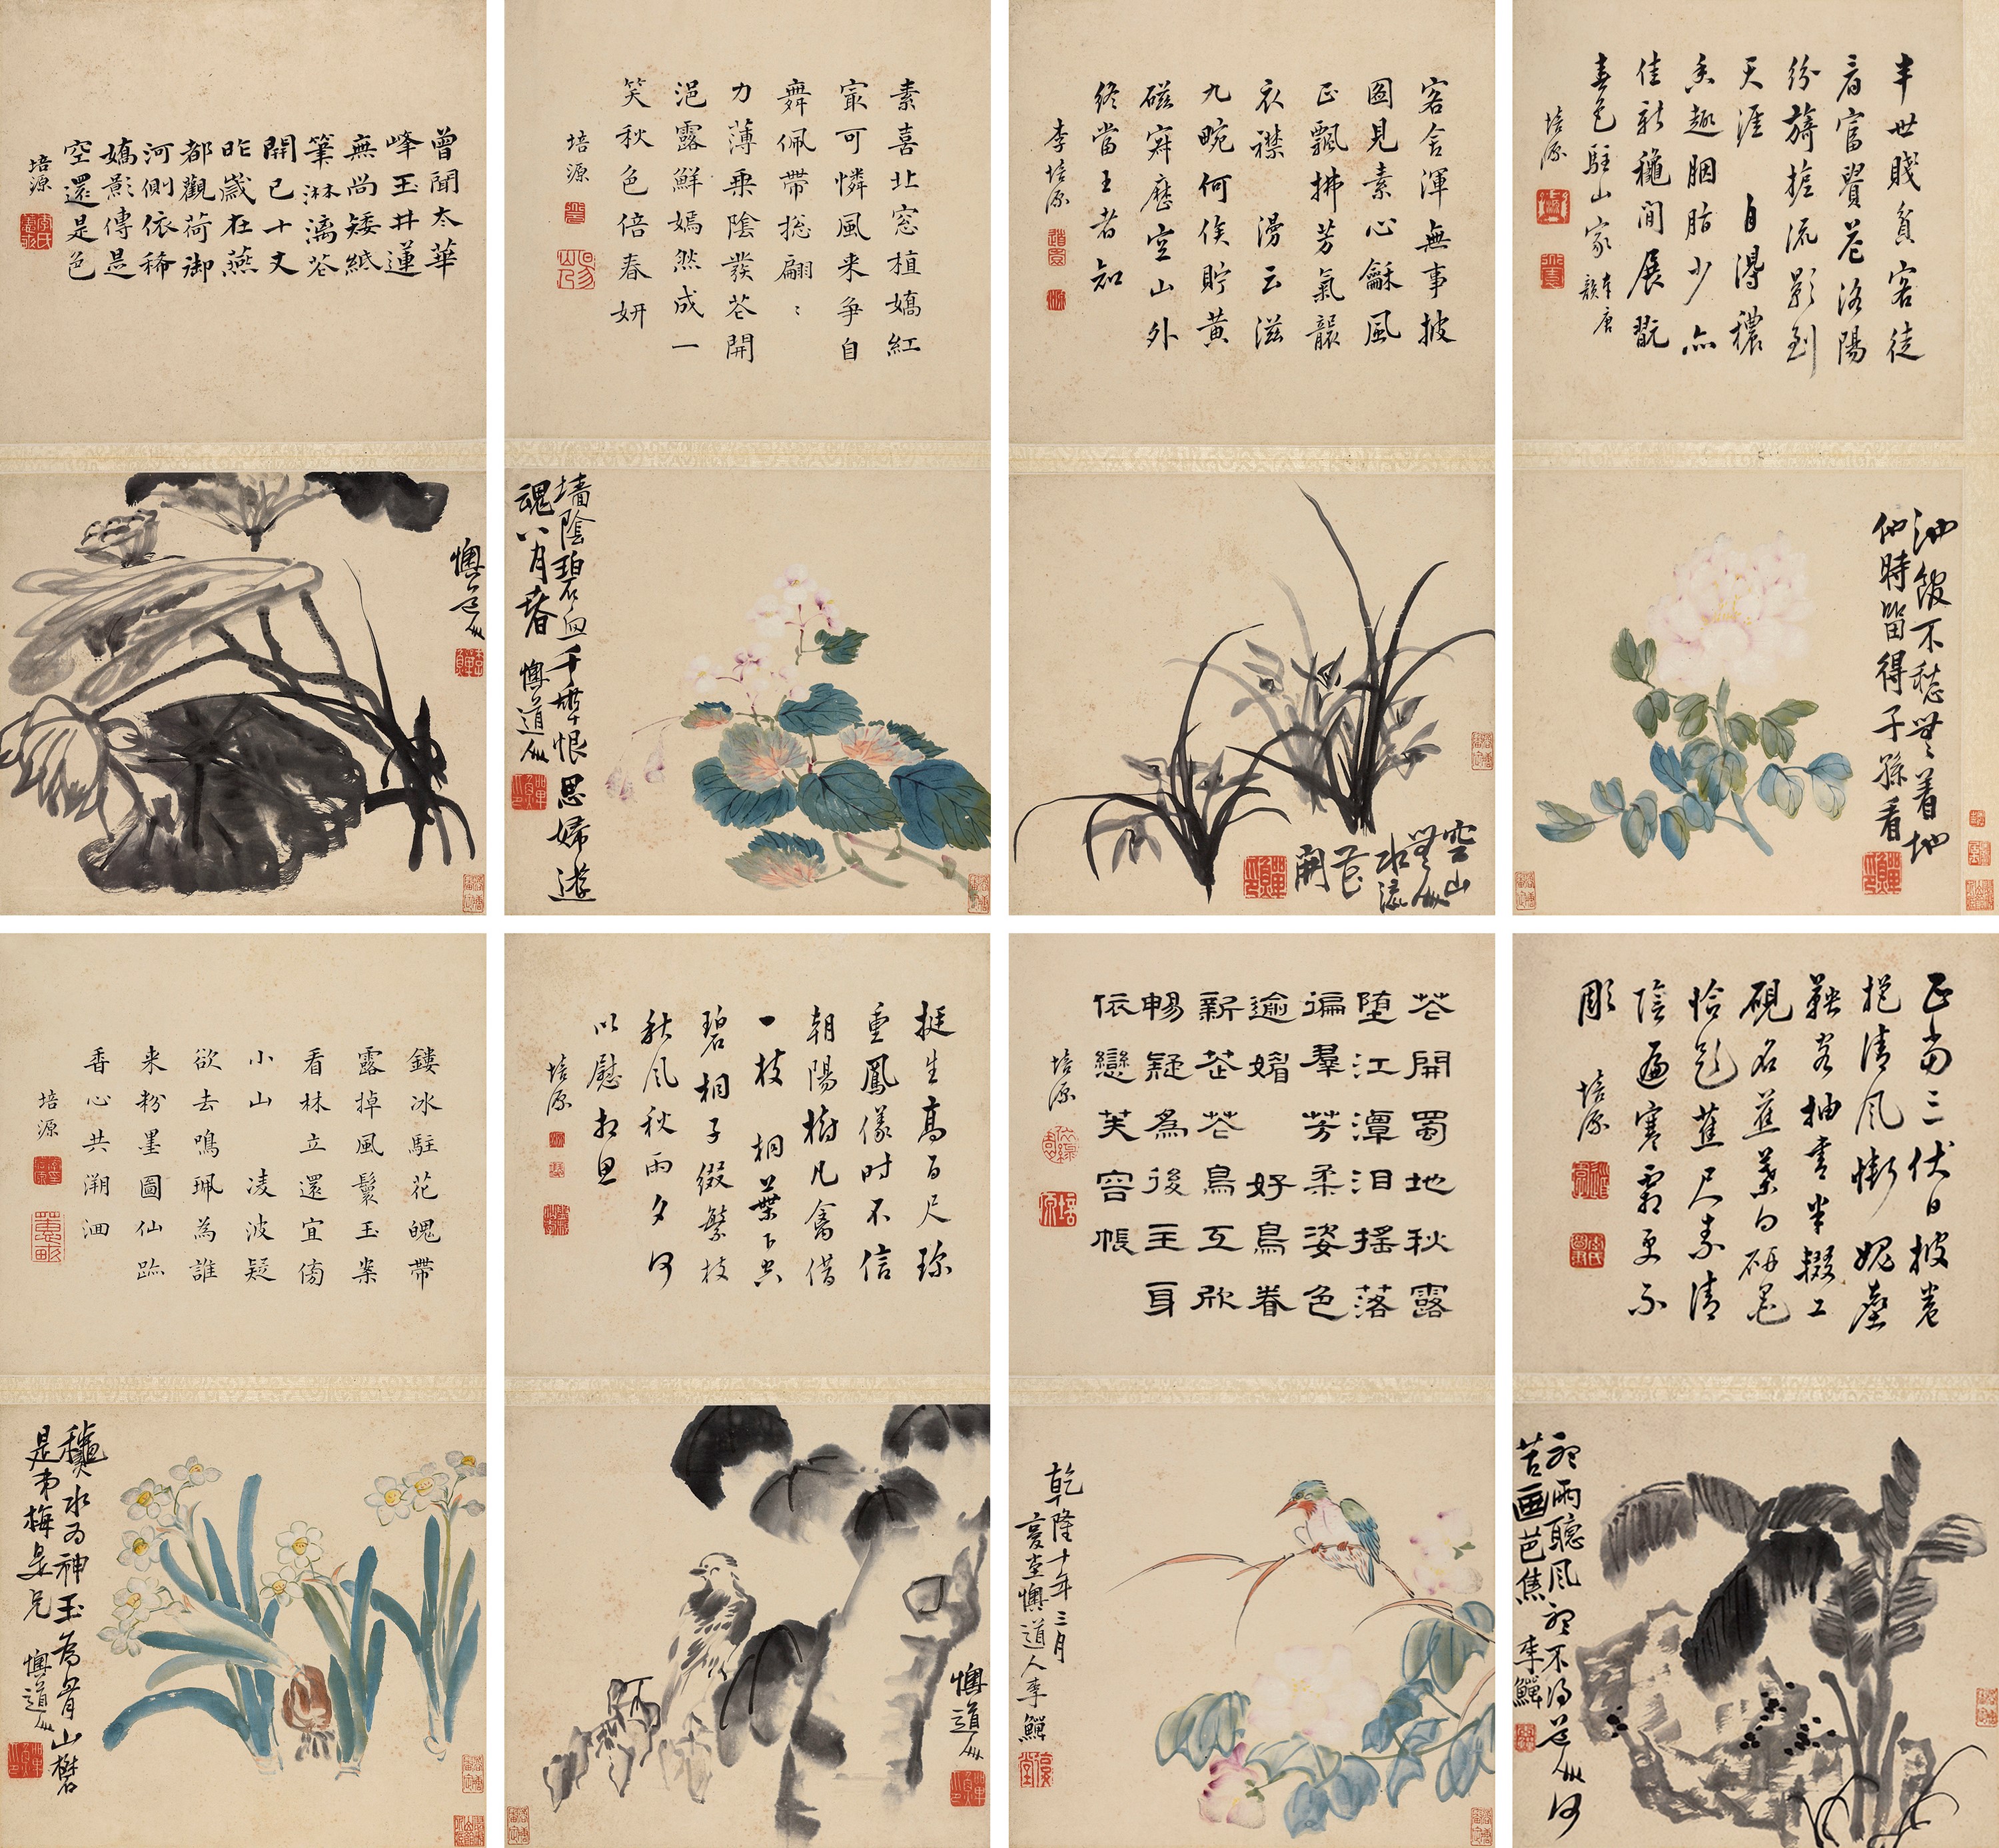 半世賤貧客徒
看富貴花洛陽
紛旖旎流影到
天涯 自得穠
香趣胭脂少点
佳新穠間展翫
春色駐山家 本唐韻
培源
油飯不愁無着地
他時留得子孫看
客舍渾無事披
圖見素心龢風
正飄拂芳氣襲
衣襟 漫云滋
九畹何俟貯黃
磁寂歷空山外
終當王者知
李培源
空山
無人
水流
花
開
素喜北窓植嬌紅
寂可憐風来爭自
舞佩帶捴翩〻
力薄乗陰發花開
浥露鮮嫣然成一
笑秋色倍春妍
培源
墻陰碧血千年恨思婦遊
魂八月春 懊道人
曾聞太華
峰玉井蓮
無尚矮紙
筆淋漓花
開已十丈
昨歲在燕
都觀荷御
河側依稀
嬌影傳是
空還是色
培源
懊道人
正當三伏日披卷
挹清風慚媿塵
鞅客抽書半輟工
硯名蕉葉白研墨
恰題蕉尺素清
陰遍寒霜更不
彫
培源
聽雨聽風聽不得道人何
苦画芭蕉 李鱓
花開蜀地秋露
堕江潭泪搖落
徧羣芳柔姿色
逾媚 好鳥眷
新花花鳥互欣
暢疑為後主耳
依戀芙容帳
培源
乾隆十年三月
復堂懊道人李鱓
挺生高百尺珎
重鳳儀时不信
朝陽樹凡禽借
一枝 桐葉下空
碧桐子綴繁枝
秋風秋雨夕何
以慰相思
培源
懊道人
鏤冰駐花魄帶
露掉風鬟玉
看林立還宜傍
小山 凌波疑
欲去鳴珮為誰
来粉墨圖仙跡
香心共溯洄
培源
龝水為神玉為骨山礬
是弟梅是兄 懊道人